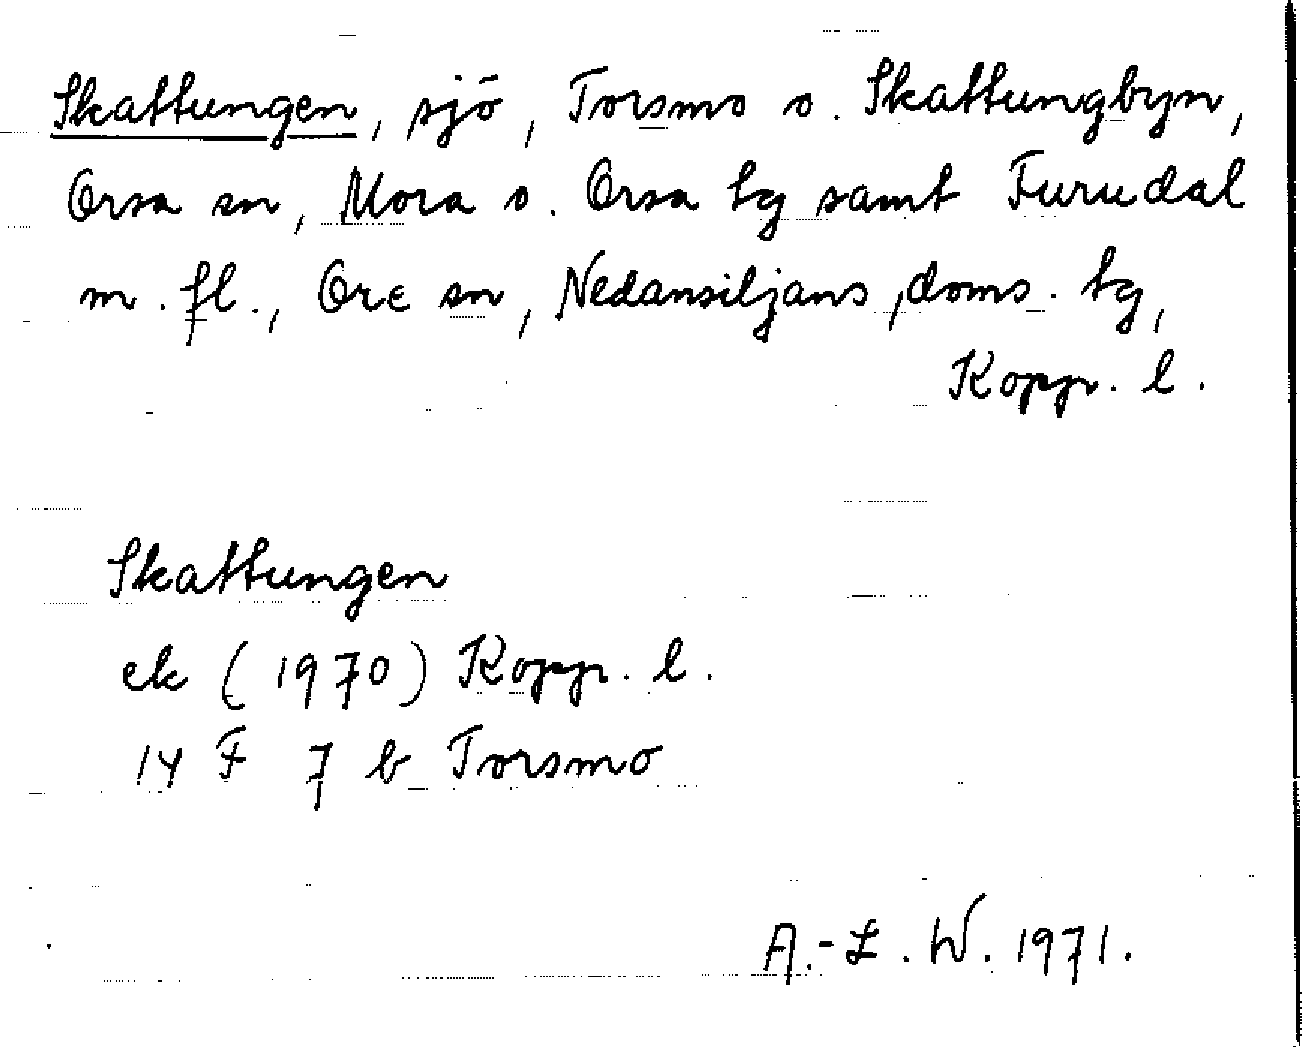 Skattungen, sjö, Torsmo o. Skattungbyn,
Orsa sn, Mora o. Orsa tg samt Furudal
m. fl., Ore sn, Nedansiljans doms. tg,
Kopp. l.
Skattungen
ek (1970) Kopp. l.
14 F 7 b Torsmo
A.-L. W. 1971.